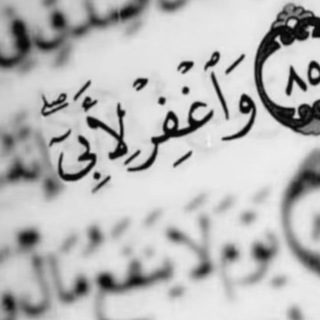 ٨٥ وَٱغْفِرْ لِأَبِىٓ ۖ
يَوْمَ لَا يَنفَعُ مَالٌ وَ